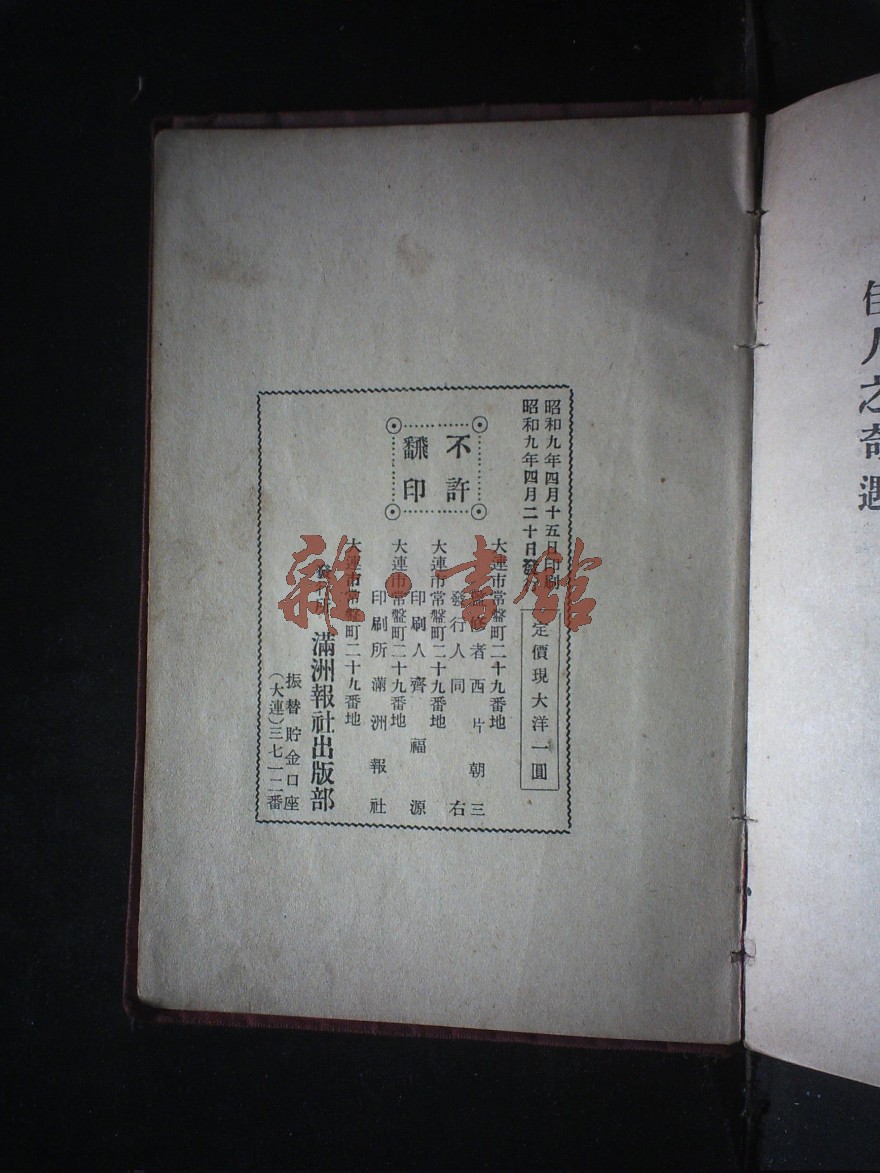 佳人之奇遇
昭和九年四月十五日印刷
昭和九年四月二十日發行
定價現大洋一圓
不許
飜印
大連市常盤町二十九番地
監修者 西片朝三
發行人 同右
大連市常盤町二十九番地
印刷人 齊福源
大連市常盤町二十九番地
印刷所 滿洲報社
大連市常盤町二十九番地
發行所 滿洲報社出版部
振替貯金口座
(大連)三七一二番
雜·書館